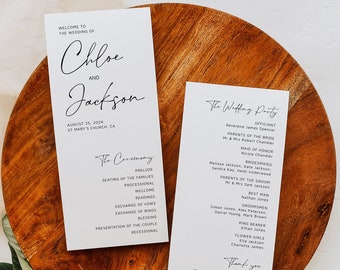 WELCOME TO
THE WEDDING OF
Chloe
AND
Jackson
AUGUST 25, 2024
ST MARY'S CHURCH, CA
The Ceremony
PRELUDE
SEATING OF THE FAMILIES
PROCESSIONAL
WELCOME
READINGS
EXCHANGE OF VOWS
EXCHANGE OF RINGS
BLESSING
PRESENTATION OF THE COUPLE
RECESSIONAL
The Wedding Party
OFFICIANT
Reverend James Spencer
PARENTS OF THE BRIDE
Nicola Chandler
MAID OF HONOR
Nicola Chandler
BRIDESMAIDS
Melissa Jackson, Kate Jackson,
Sandra Kay, Heidi Underwood
PARENTS OF THE GROOM
Mr & Mrs Sam Jackson
BEST MAN
Nathan Jones
GROOMSMEN
Simon Jones, Alex Peterson,
Daniel Young, Mark Brown
RING BEARER
Ethan Jones
FLOWER GIRLS
Ella Jackson
Charlotte James
Thank you